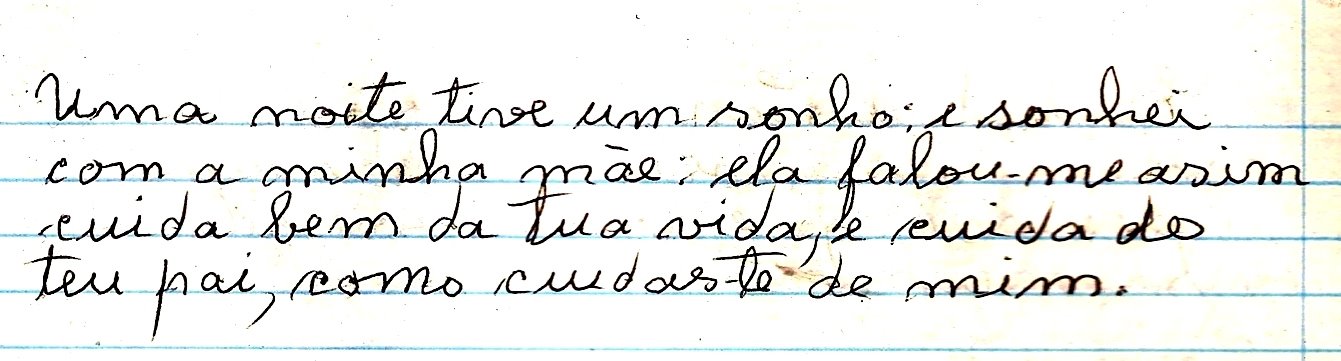 Uma noite tive um sonho: e sonhei
com a minha mãe: ela falou-me asim
cuida bem da tua vida, e cuida do
teu pai, como cuidas-te de mim.